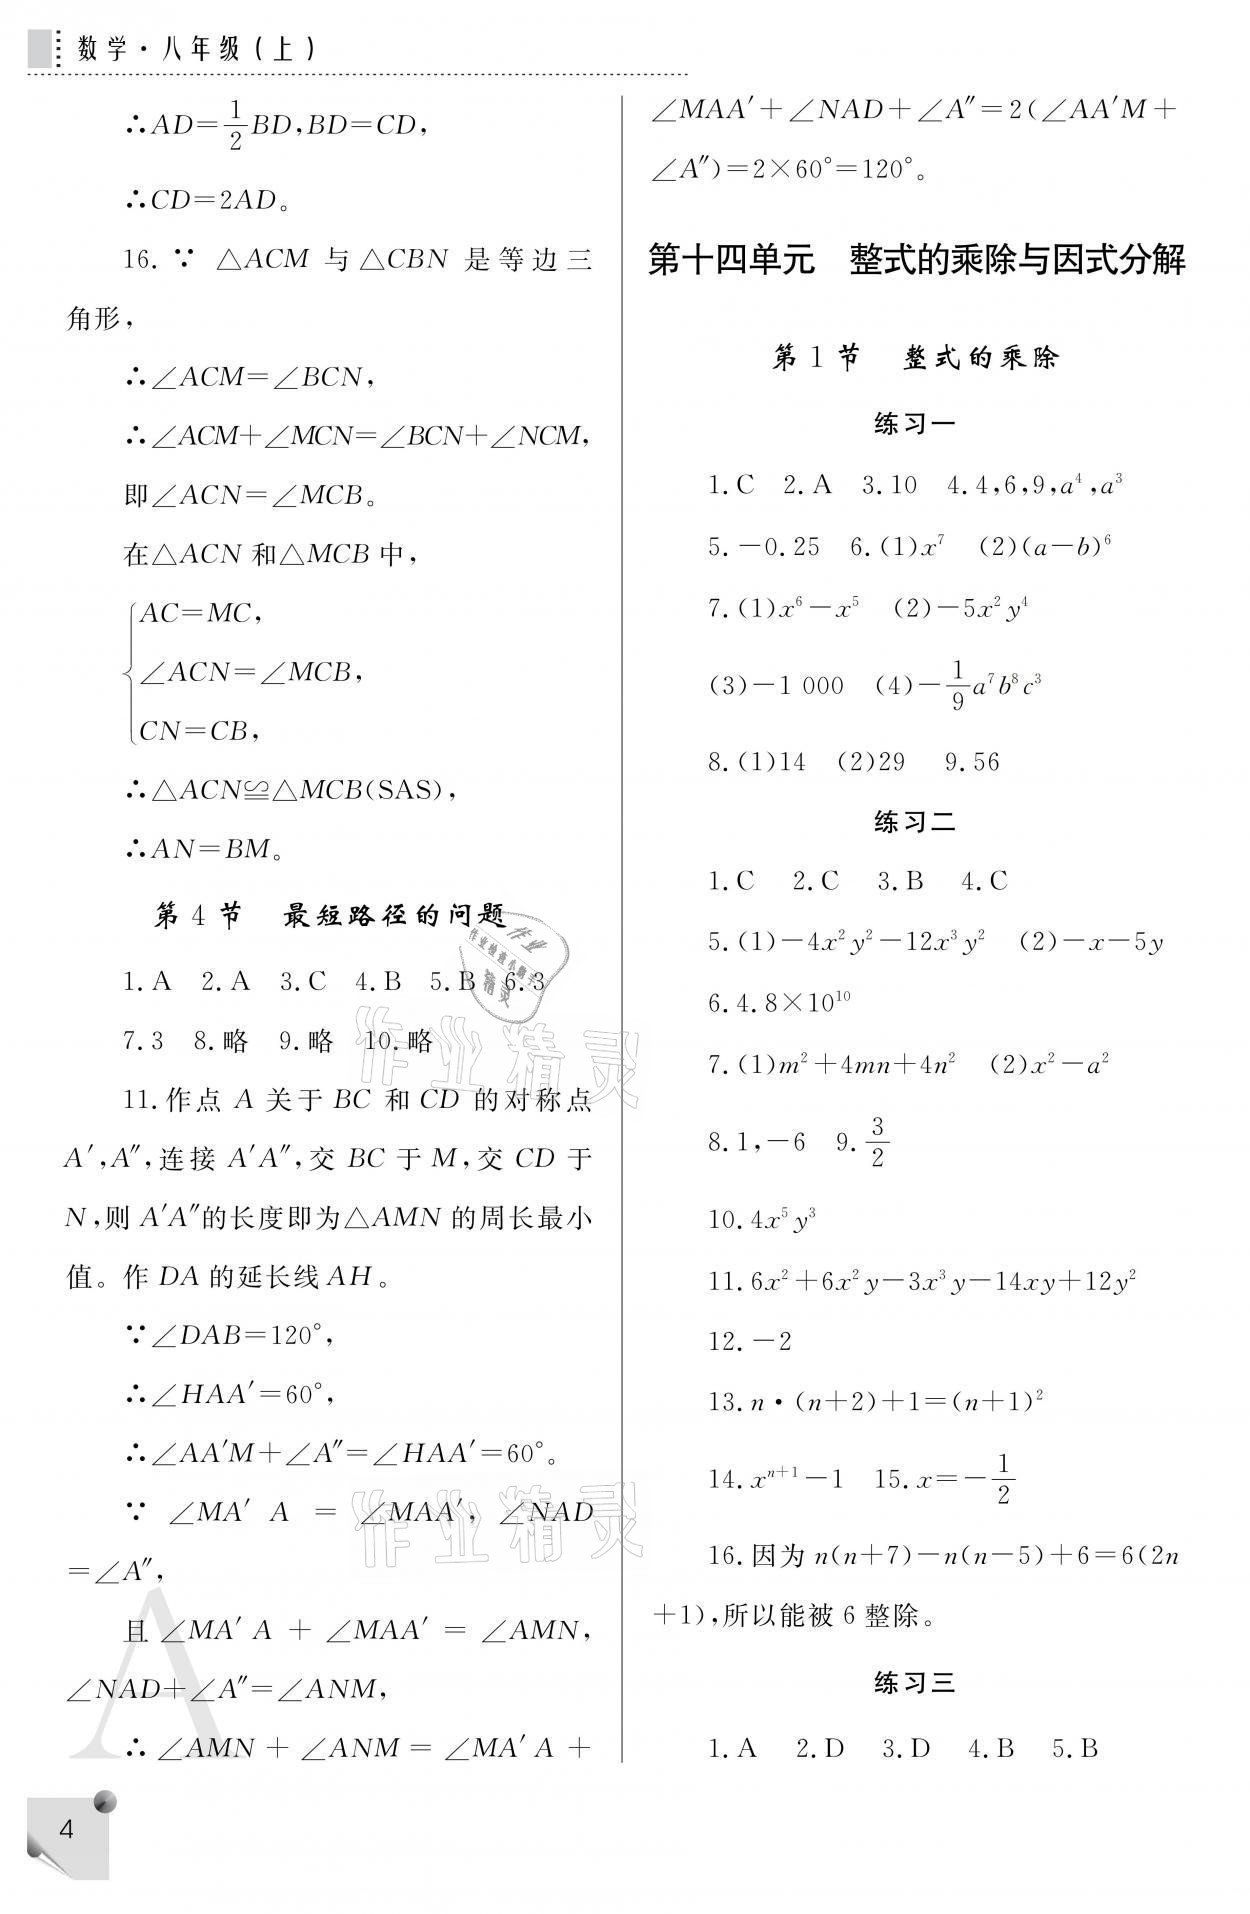 数学·八年级(上)
∴AD=1/2BD,BD=CD,
∴CD=2AD。
16.∵ △ACM 与△CBN 是等边三
角形,
∴∠ACM=∠BCN,
∴∠ACM+∠MCN=∠BCN+∠NCM,
即∠ACN=∠MCB。
在△ACN 和△MCB 中,
{AC=MC,
∠ACN=∠MCB,
CN=CB,
∴△ACN≌△MCB(SAS),
∴AN=BM。
第 4 节 最短路径的问题
1.A 2.A 3.C 4.B 5.B 6.3
7.3 8.略 9.略 10.略
11.作点 A 关于 BC 和 CD 的对称点
A′,A″,连接 A′A″,交 BC 于 M,交 CD 于
N,则 A′A″的长度即为△AMN 的周长最小
值。作 DA 的延长线 AH。
∵∠DAB=120°,
∴∠HAA′=60°,
∴∠AA′M+∠A″=∠HAA′=60°。
∵ ∠MA′A = ∠MAA′, ∠NAD
=∠A″,
且 ∠MA′A + ∠MAA′ = ∠AMN,
∠NAD+∠A″=∠ANM,
∴ ∠AMN + ∠ANM = ∠MA′A +
∠MAA′+∠NAD+∠A″=2(∠AA′M+
∠A″)=2×60°=120°。
第十四单元 整式的乘除与因式分解
第 1 节 整式的乘除
练习一
1.C 2.A 3.10 4.4,6,9,a⁴,a³
5.-0.25 6.(1)x⁷ (2)(a-b)⁶
7.(1)x⁶-x⁵ (2)-5x²y⁴
(3)-1 000 (4)-1/9a⁷b⁸c³
8.(1)14 (2)29 9.56
练习二
1.C 2.C 3.B 4.C
5.(1)-4x²y²-12x³y² (2)-x-5y
6.4.8×10¹⁰
7.(1)m²+4mn+4n² (2)x²-a²
8.1,-6 9.3/2
10.4x⁵y³
11.6x²+6x²y-3x³y-14xy+12y²
12.-2
13.n·(n+2)+1=(n+1)²
14.xⁿ⁺¹-1 15.x=-1/2
16.因为 n(n+7)-n(n-5)+6=6(2n
+1),所以能被 6 整除。
练习三
1.A 2.D 3.D 4.B 5.B
作业精灵
作业精灵
作业
精灵
A
4